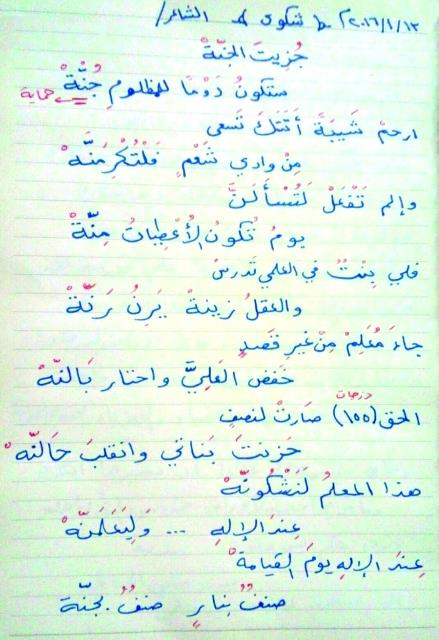 ٢٠١٦/١/١٣م شكوى الشاعر/
جُزيتَ الجنّةْ
ستكونُ دَوماً للمظلومِ جُنّةْ حماية
ارحمْ شَيبَةً أتَتكَ تَسعى
مِنْ وادي شَعْمٍ فَلْتُكْرِمَنَّهْ
وإلم تَفْعَلْ لَتُسْأَلَنَّ
يومُ تَكونُ الأُعْطِياتُ مِنّةْ
فلي بِنْتٌ في العلمي تَدرسْ
والعقلُ زينةْ يَرِنُ رَنّةْ
جاءَ مُعَلِمْ مِنْ غيرِ قَصدٍ
خَفض العَلِيَّ واحتار بَالنّهْ
الحق (١٥٥) صَارتْ لنصفٍ
درجات
حَزِنتَ بَناتي وانقلبَ حَالنّهْ
هذا المعلمُ لَنَشْكُونّهْ
عِندَ الإلهِ ... وَلِيَعْلَمَنّهْ
عِندَ الإلهِ يومَ القيامةْ
صنفٌ بنارٍ صنفٌ بجنّة